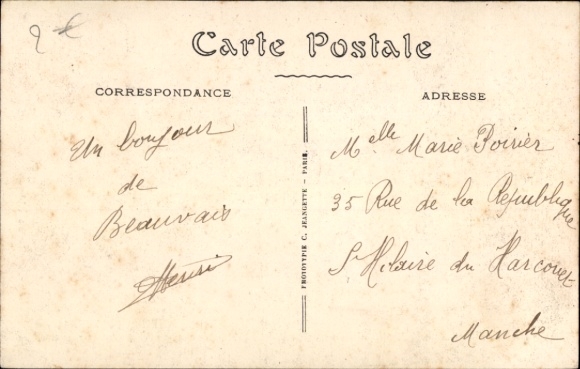 2 €
Carte Postale
CORRESPONDANCE
ADRESSE
Un bonjour
de
Beauvais
Henri
PHOTOTYPIE C. JEANGETTE - PARIS.
Melle Marie Poirier
35 Rue de la République
St Hilaire du Harcouet
Manche